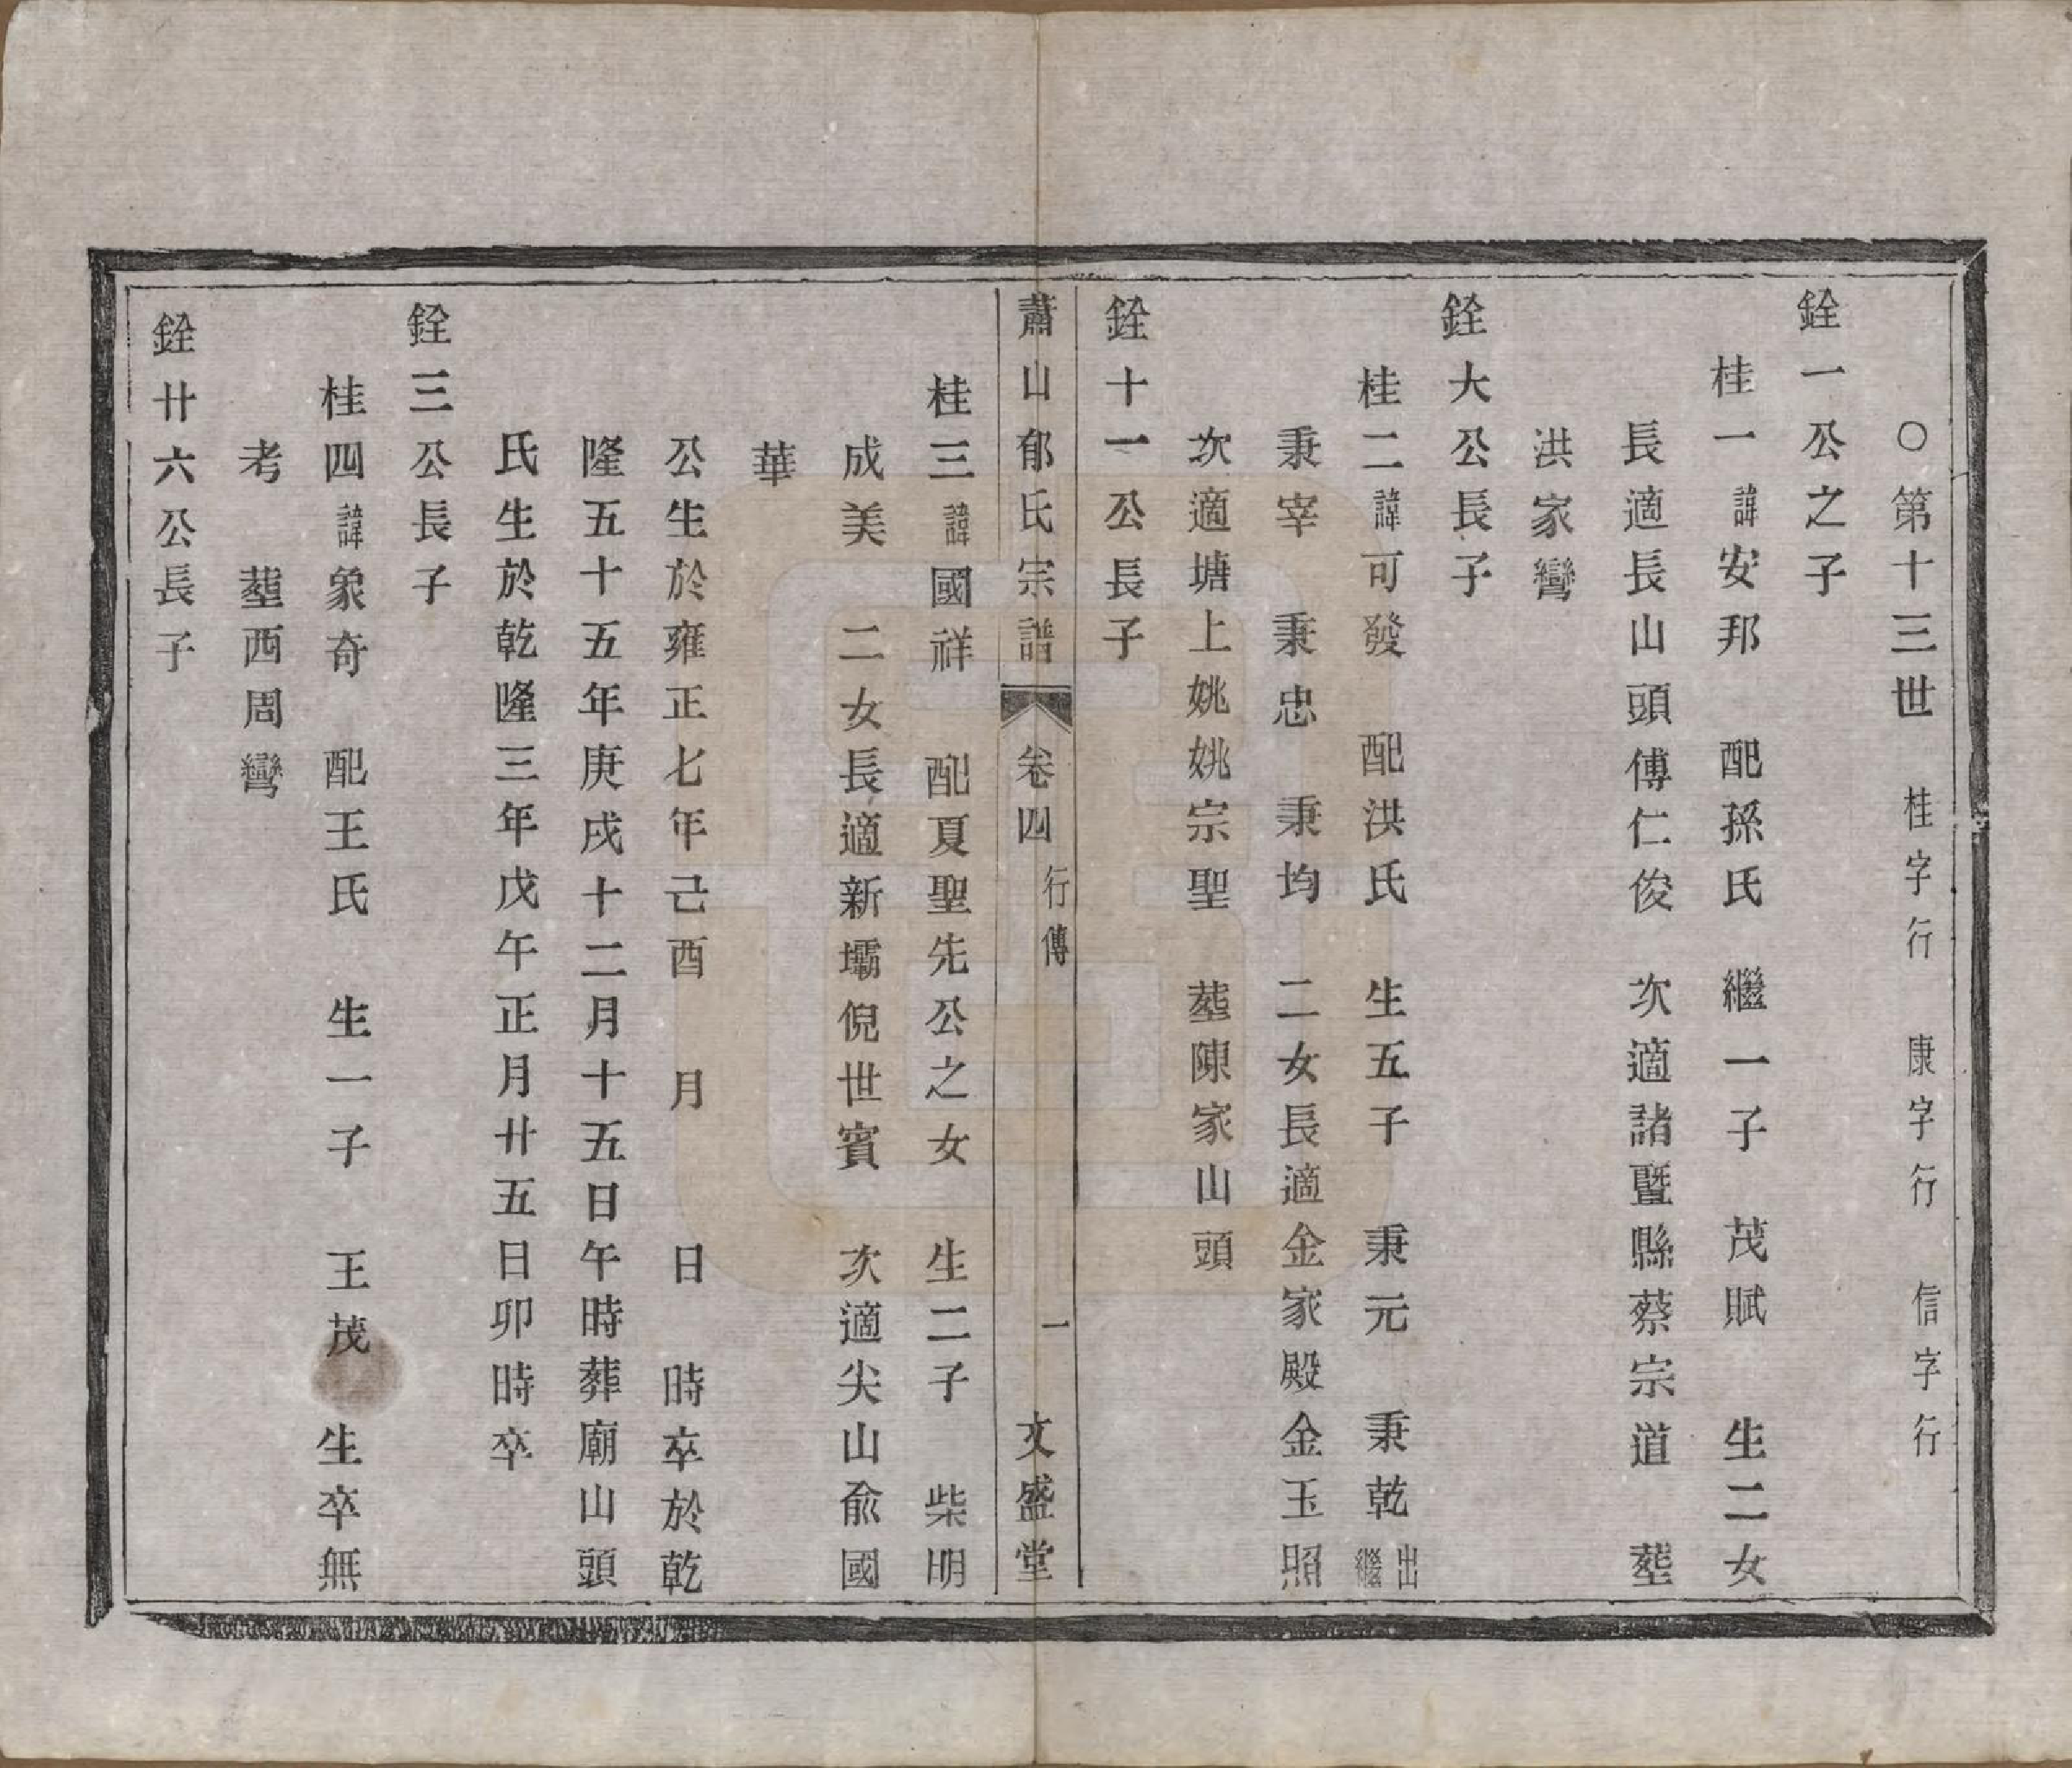 ○第十三世　桂字行　康字行　信字行
銓一公之子
桂一諱安邦　配孫氏　繼一子　茂賦　生二女
長適長山頭傅仁俊　次適諸暨縣蔡宗道　塟
洪家彎
銓大公長子
桂二諱可發　配洪氏　生五子　秉元　秉乾出繼
秉宰　秉忠　秉均　二女長適金家殿金玉照
次適塘上姚姚宗聖　塟陳家山頭
銓十一公長子
蕭山郁氏宗譜　卷四　行傳　一　文盛堂
桂三諱國祥　配夏聖先公之女　生二子　柴明
成美　二女長適新壩倪世賓　次適尖山兪國
華
公生於雍正七年己酉　月　日　時卒於乾
隆五十五年庚戌十二月十五日午時葬廟山頭
氏生於乾隆三年戊午正月廿五日卯時卒
銓三公長子
桂四諱象奇　配王氏　生一子　王茂　生卒無
考　塟西周彎
銓廿六公長子